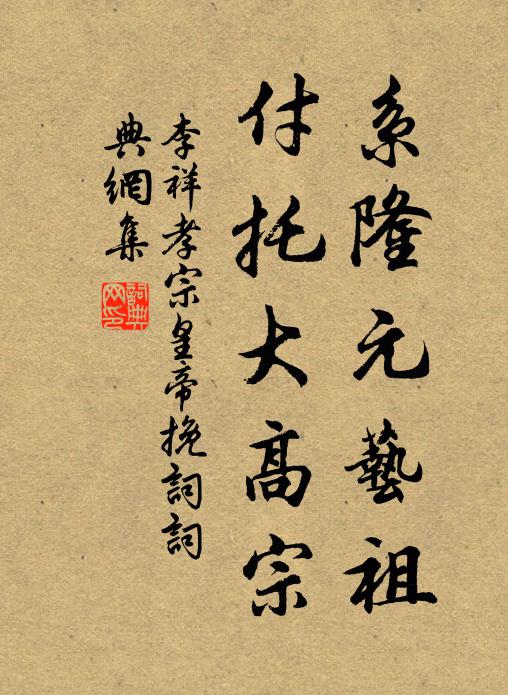 系隆元藝祖
付托大高宗
李祥孝宗皇帝挽詞詞
典網集
詞典
网印